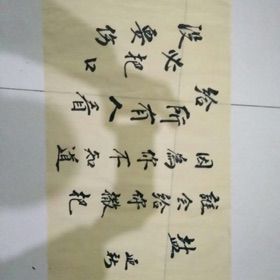 没必
要把
伤口
给
所有人看
因為你不知道
誰会给你撒把
盐